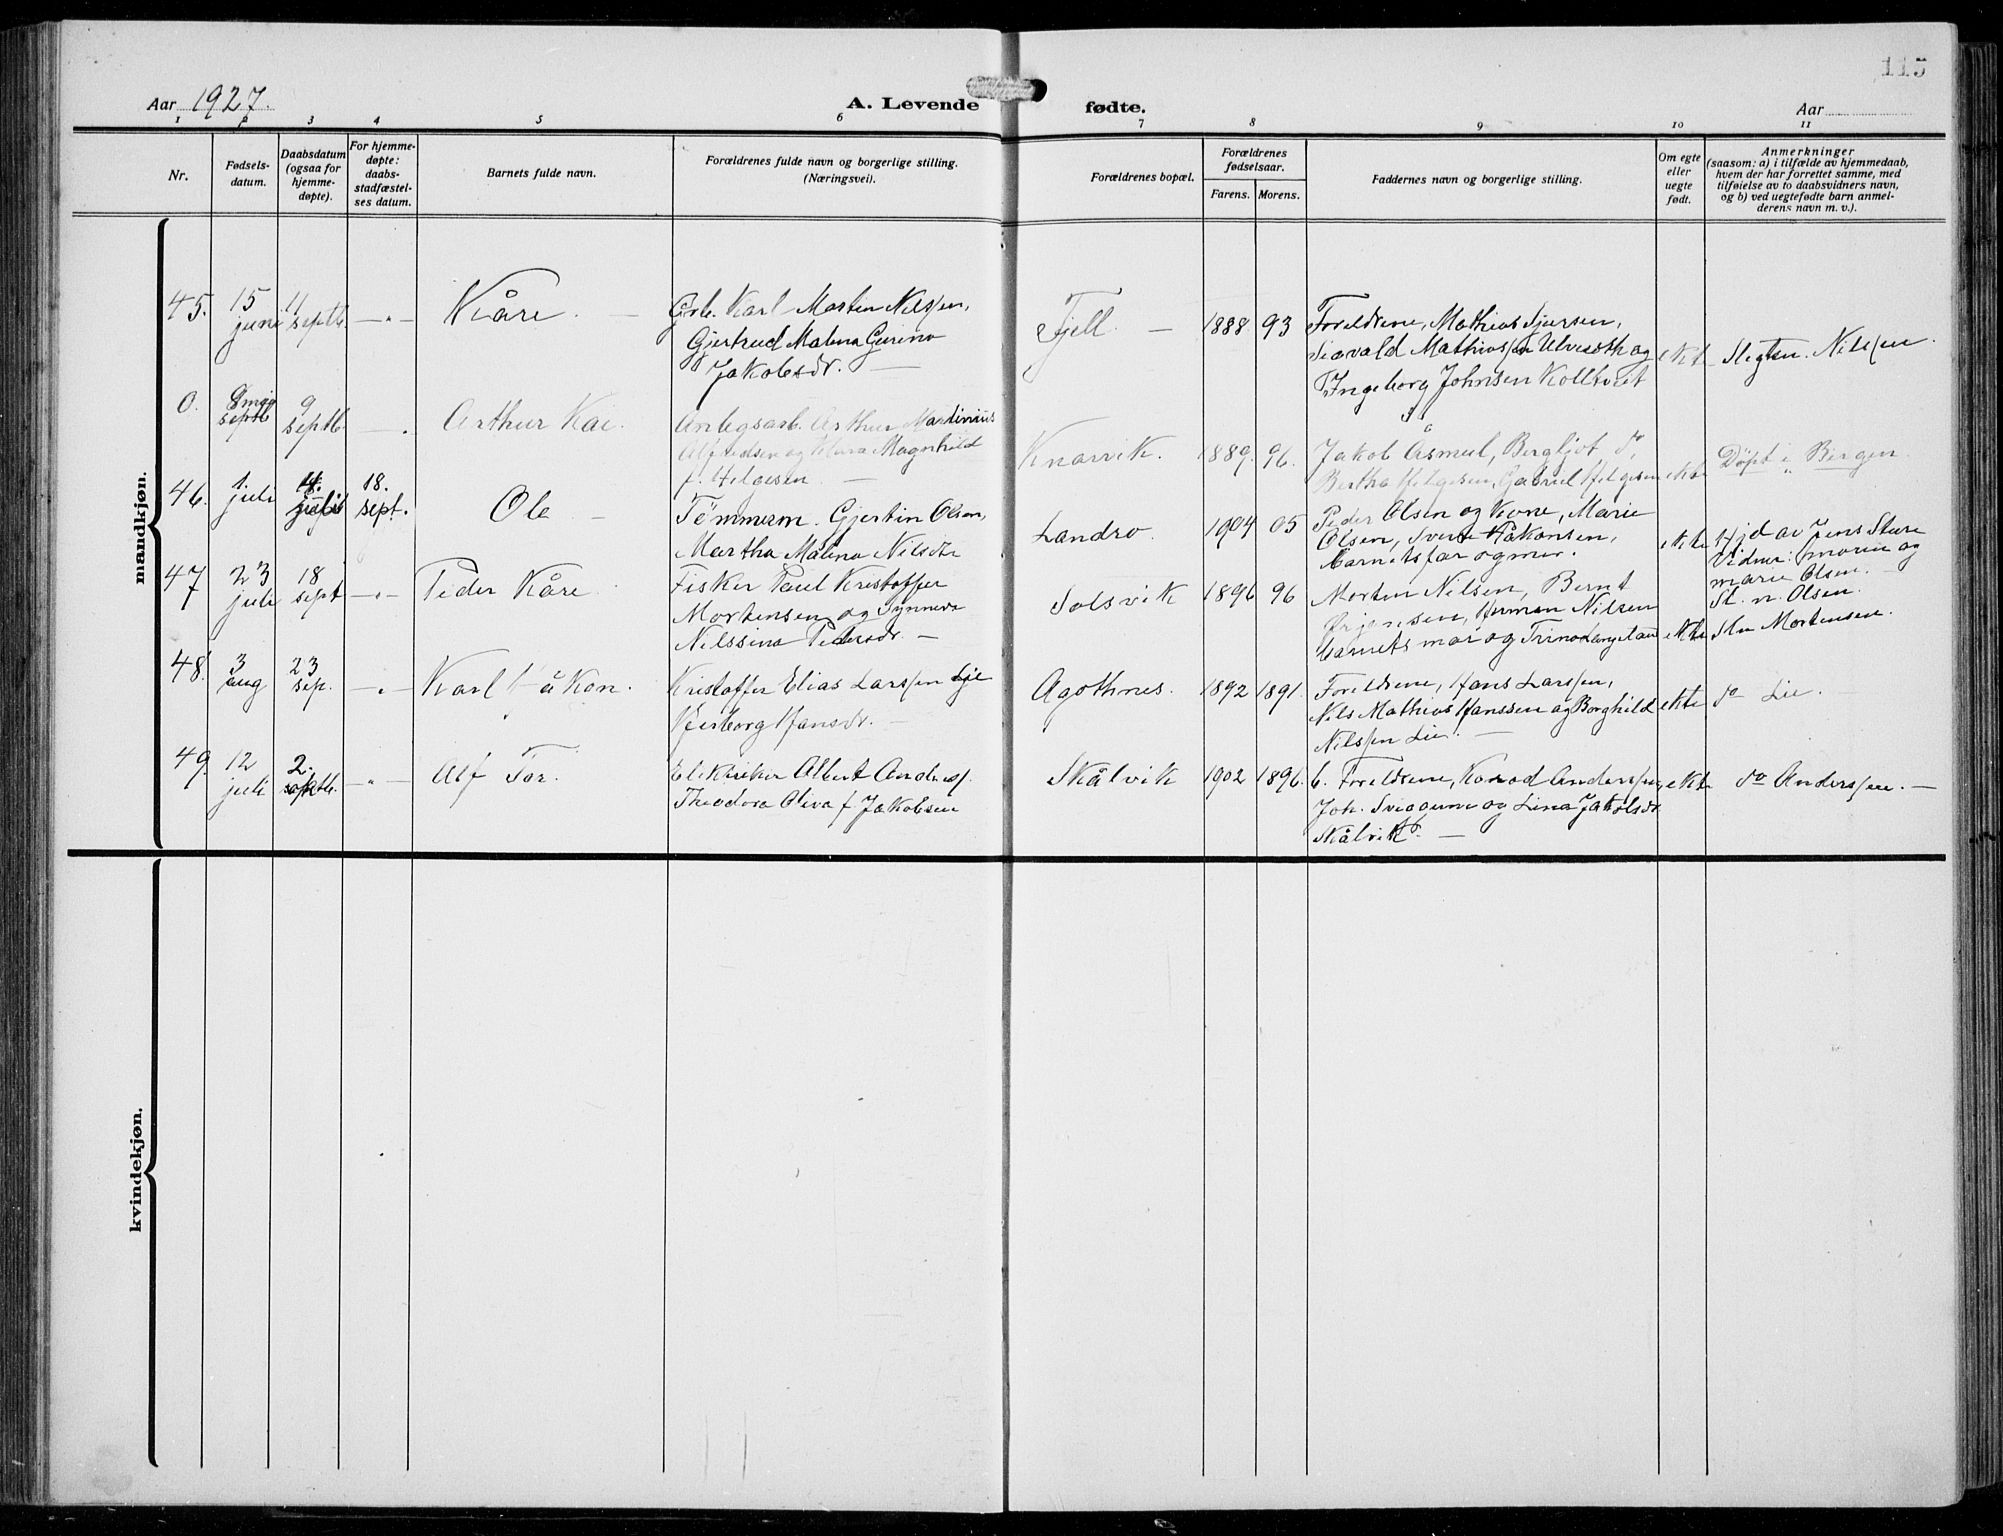 115
Aar 1927.
A. Levende fødte.
Aar
1 2 3 4 5 6 7 8 9 10 11
Nr.
Fødsels-
datum.
Daabsdatum
(ogsaa for
hjemme-
døpte).
For hjemme-
døpte:
daabs-
stadfæstel-
ses datum.
Barnets fulde navn.
Forældrenes fulde navn og borgerlige stilling.
(Næringsvei).
Forældrenes bopæl.
Forældrenes
fødselsaar.
Farens. Morens.
Faddernes navn og borgerlige stilling.
Om egte
eller
uegte
født.
Anmerkninger
(saasom: a) i tilfælde av hjemmedaab,
hvem der har forrettet samme, med
tilføielse av to daabsvidners navn,
og b) ved uegtefødte barn anmel-
derens navn m. v.).
mandkjøn.
45.
15
juni
11
septb.
Kåre. —
Grb. Karl Morten Nilssen,
Gjertrud Malena Gurina
Jakobsdr. —
Fjell —
1888 93
Foreldrene, Mathias Sjursen,
Sigvald Mathiassen Ulveseth og
Ingeborg Johnsen Kolltveit
ekt
Nilssen.
0.
septb
9
septb.
Arthur Kai.
Anlegsarb. Arthur Martinius
Alfredsen og Klara Magnhild
f. Helgesen —
Knarvik.
1889. 96.
Jakob Asmul, Bergljot do,
Bertha Helgesen, Gabriel Helgesen
ekte
Døpt i Bergen.
46.
1.
juli
18.
sept.
Ole —
Tømmerm. Gjertin Olsen,
Martha Malena Nilsdtr
Landro.
1904 05
Peder Olsen og Kone, Marie
Olsen, Håkonsen,
barnets far og mor.
ekte
Hjd av Jens Sture
Vidner: Marie og
Marie Olsen. —
St. n. Olsen.
47
23
juli
18
sept
Peder Kåre.
Fisker Paul Kristoffer
Mortensen og Synneva
Nilssina Pedersdr. —
Solsvik
1896 96
Morten Nilsen, Bernt
Ørjansen, Herman Nilsen
barnets mor og Trina
ekte
Mortensen.
48.
3
aug
23
sep.
Karl Håkon.
Kristoffer Elias Larssen Lie
Herborg Hansdr. —
Agothnes.
1892 1891.
Foreldrene, Hans Larssen,
Nils Mathias Hanssen og Borghild
Nilssen Lie. —
ekte
do Lie.
49.
12
juli
2.
Alf Tor.
Elektriker Albert Anders.
Theodora Oliva f Jakobsen
Skålvik
1902 1896.
6. Foreldrene, Konrad Anderssen,
Joh. Sveggum og Lina Jakobsdr
Skålvik. —
ekte
do Anderssen. —
kvindekjøn.